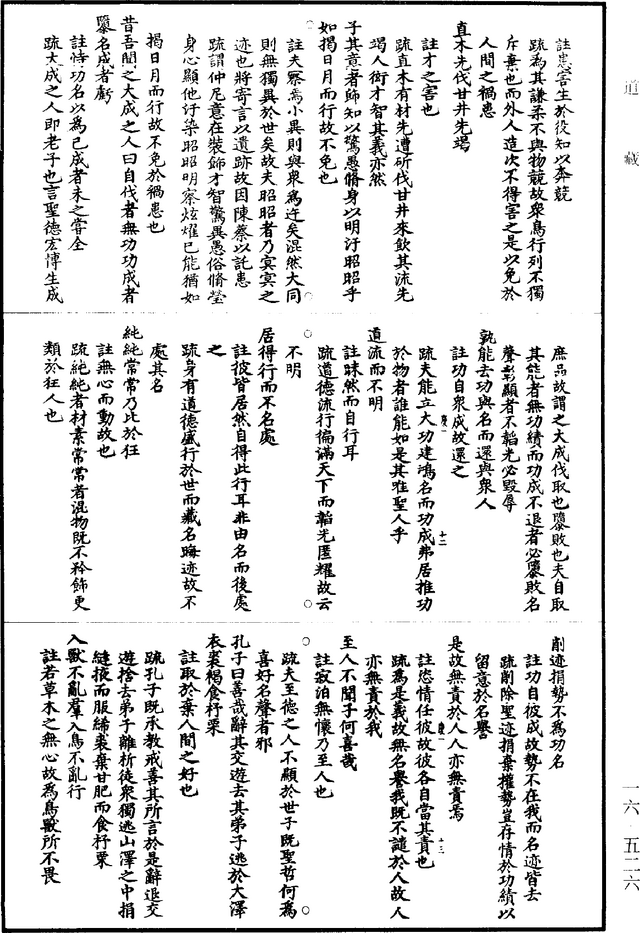 道藏
註患害生於役知以奔競
疏為其謙柔不與物競故衆鳥行列不獨
斥棄也而外人造次不得害之是以免於
人間之禍患
直木先伐甘井先竭
註才之害也
疏直木有材先遭斫伐甘井來飲其流先
竭人衒才智其義亦然
子其意者飾知以驚愚脩身以明汙昭昭乎
如揭日月而行故不免也
註夫察焉小異則與衆為迕矣混然大同
則無獨異於世矣故夫昭昭者乃冥冥之
迹也將寄言以遺跡故因陳蔡以託患
疏謂仲尼意在裝飾才智驚異愚俗脩瑩
身心顯他汙染昭昭明察炫燿已能猶如
揭日月而行故不免於禍患也
昔吾聞之大成之人曰自伐者無功功成者
隳名成者虧
註恃功名以為已成者未之嘗全
疏大成之人即老子也言聖德宏博生成
庶品故謂之大成伐取也隳敗也夫自取
其能者無功績而功成不退者必隳敗名
聲彰顯者不韜光必毀辱
孰能去功與名而還與衆人
註功自衆成故還之
疏夫能立大功建鴻名而功成弗居推功
於物者誰能如是其唯聖人乎
道流而不明
註昧然而自行耳
疏道德流行徧滿天下而韜光匿耀故云
不明
居得行而不名處
註彼皆居然自得此行耳非由名而後處
之
疏身有道德盛行於世而藏名晦迹故不
處其名
純純常常乃比於狂
註無心而動故也
疏純純者材素常常者混物既不矜飾更
類於狂人也
削迹捐勢不為功名
註功自彼成故勢不在我而名迹皆去
疏削除聖迹捐棄權勢豈存情於功績以
留意於名譽
是故無責於人人亦無責焉
註恣情任彼故彼各自當其責也
疏為是義故無名譽我既不譴於人故人
亦無責於我
至人不聞子何喜哉
註寂泊無懷乃至人也
疏夫至德之人不顯於世子既聖哲何為
喜好名聲者邪
孔子曰善哉辭其交遊去其弟子逃於大澤
衣裘褐食杼栗
註取於棄人間之好也
疏孔子既承教戒善其所言於是辭退交
遊捨去弟子離析徒衆獨逃山澤之中損
縫掖而服絺裘棄甘肥而食杼栗
入獸不亂羣入鳥不亂行
註若草木之無心故為鳥獸所不畏
十二
十三
一六 五二六